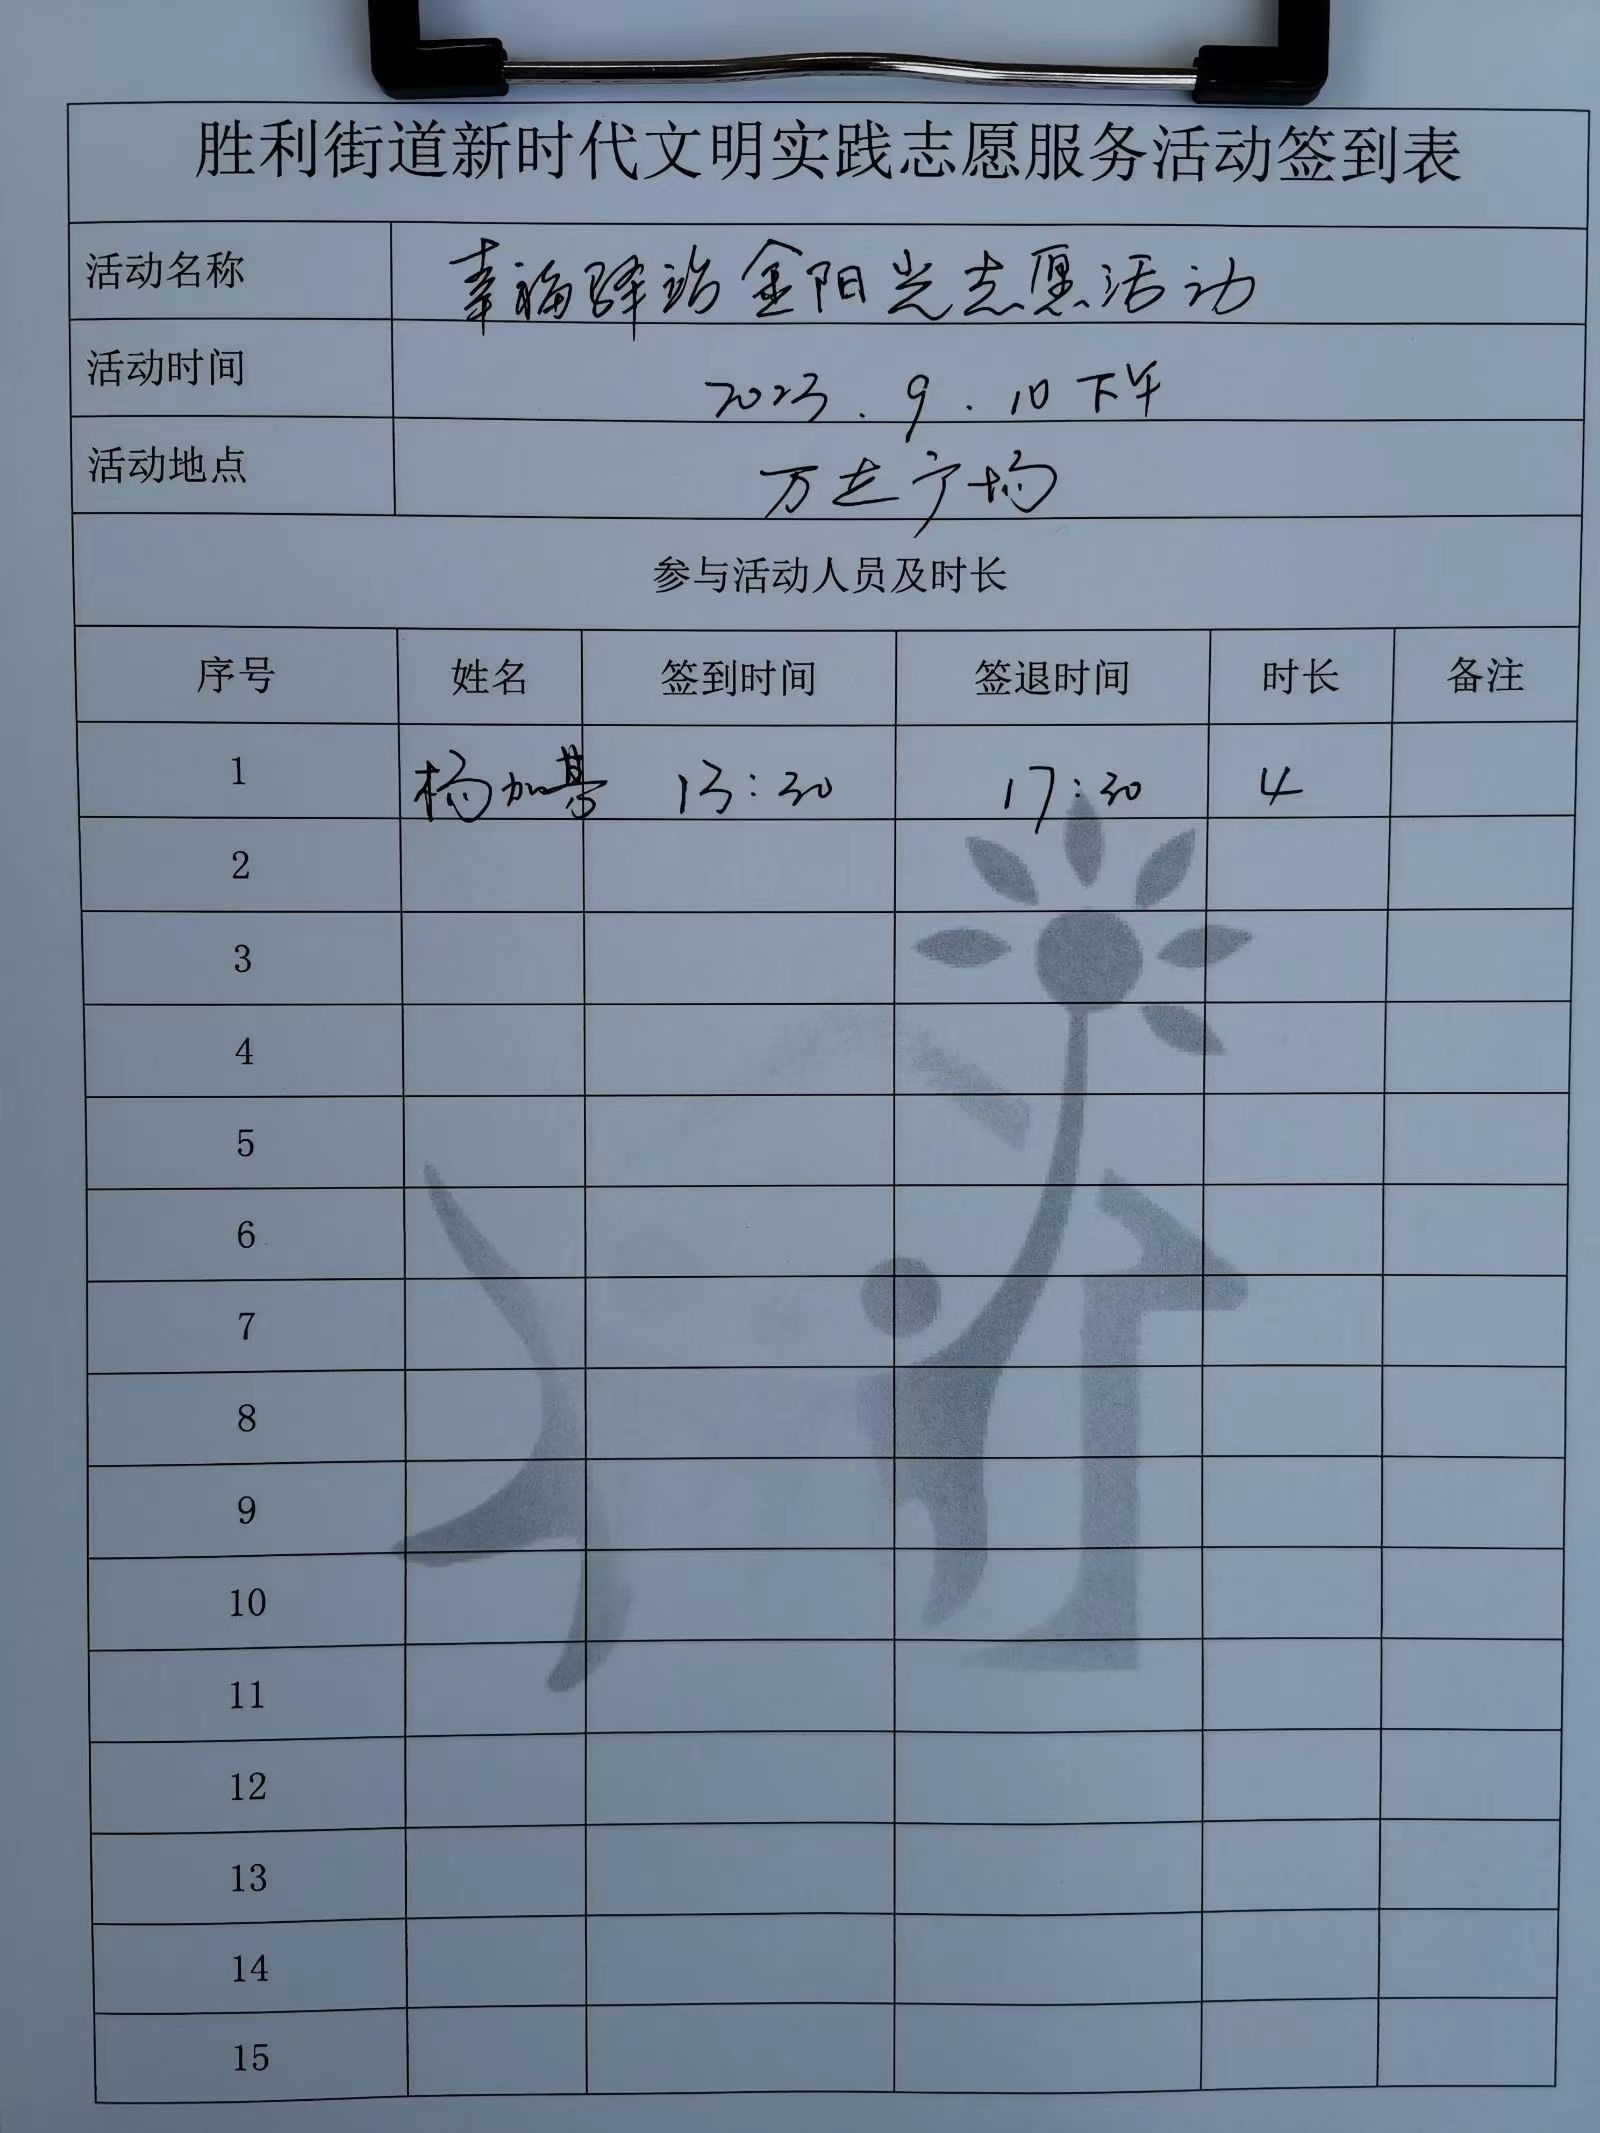 胜利街道新时代文明实践志愿服务活动签到表
活动名称 幸福驿站金阳光志愿活动
活动时间 2023.9.10下午
活动地点 万达广场
参与活动人员及时长
序号 姓名 签到时间 签退时间 时长 备注
1 杨加基 13:30 17:30 4
2
3
4
5
6
7
8
9
10
11
12
13
14
15